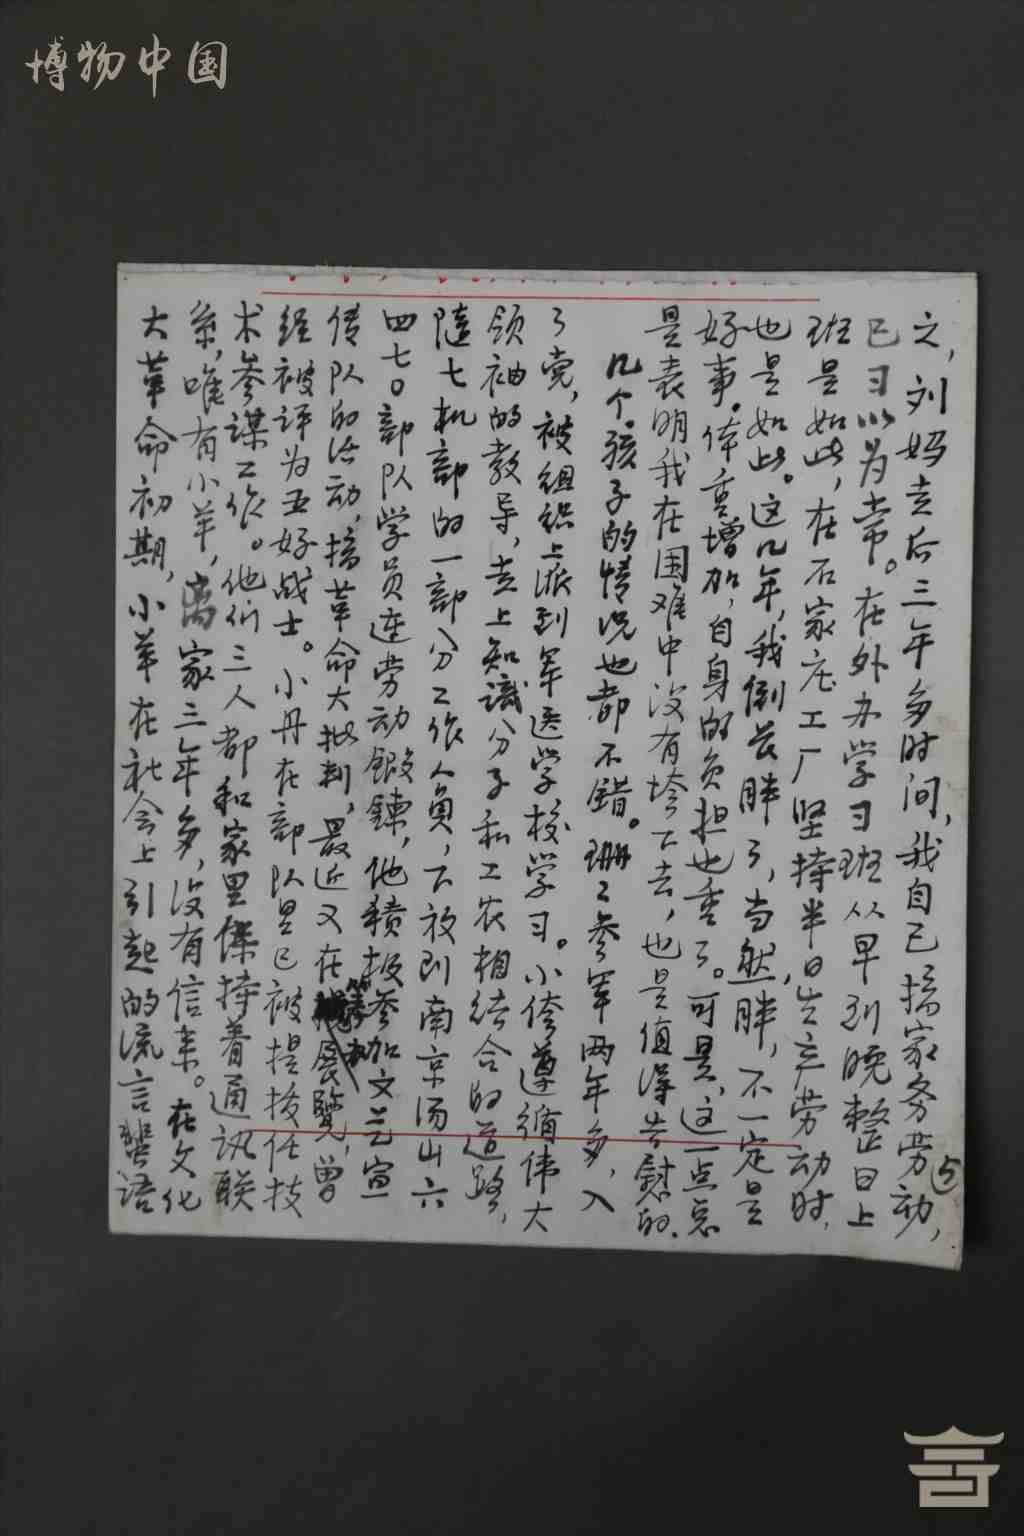 博物中国
之,刘妈去后三年多时间,我自己搞家务劳动,
已习以为常。在外办学习班从早到晚整日上
班是如此,在石家庄工厂坚持半日生产劳动时,
也是如此。这几年,我倒长胖了,当然胖,不一定是
好事。体重增加,自身的负担也重了。可是,这一点总
是表明我在困难中没有垮下去,也是值得告慰的.
几个孩子的情况也都不错。珊珊参军两年多,入
了党,被组织上派到军医学校学习。小侉遵循伟大
领袖的教导,走上知识分子和工农相结合的道路,
随七机部的一部分工作人员,下放到南京汤山六
四七〇部队学员连劳动锻鍊,他积极参加文艺宣
传队的活动,搞革命大批判,最近又在筹办展覽,曾
经被评为五好战士。小丹在部队里已被提拔任技
术参谋工作。他们三人都和家里保持着通訊联
系,唯有小羊,离家三年多,没有信来。在文化
大革命初期,小羊在社会上引起的流言蜚语
5